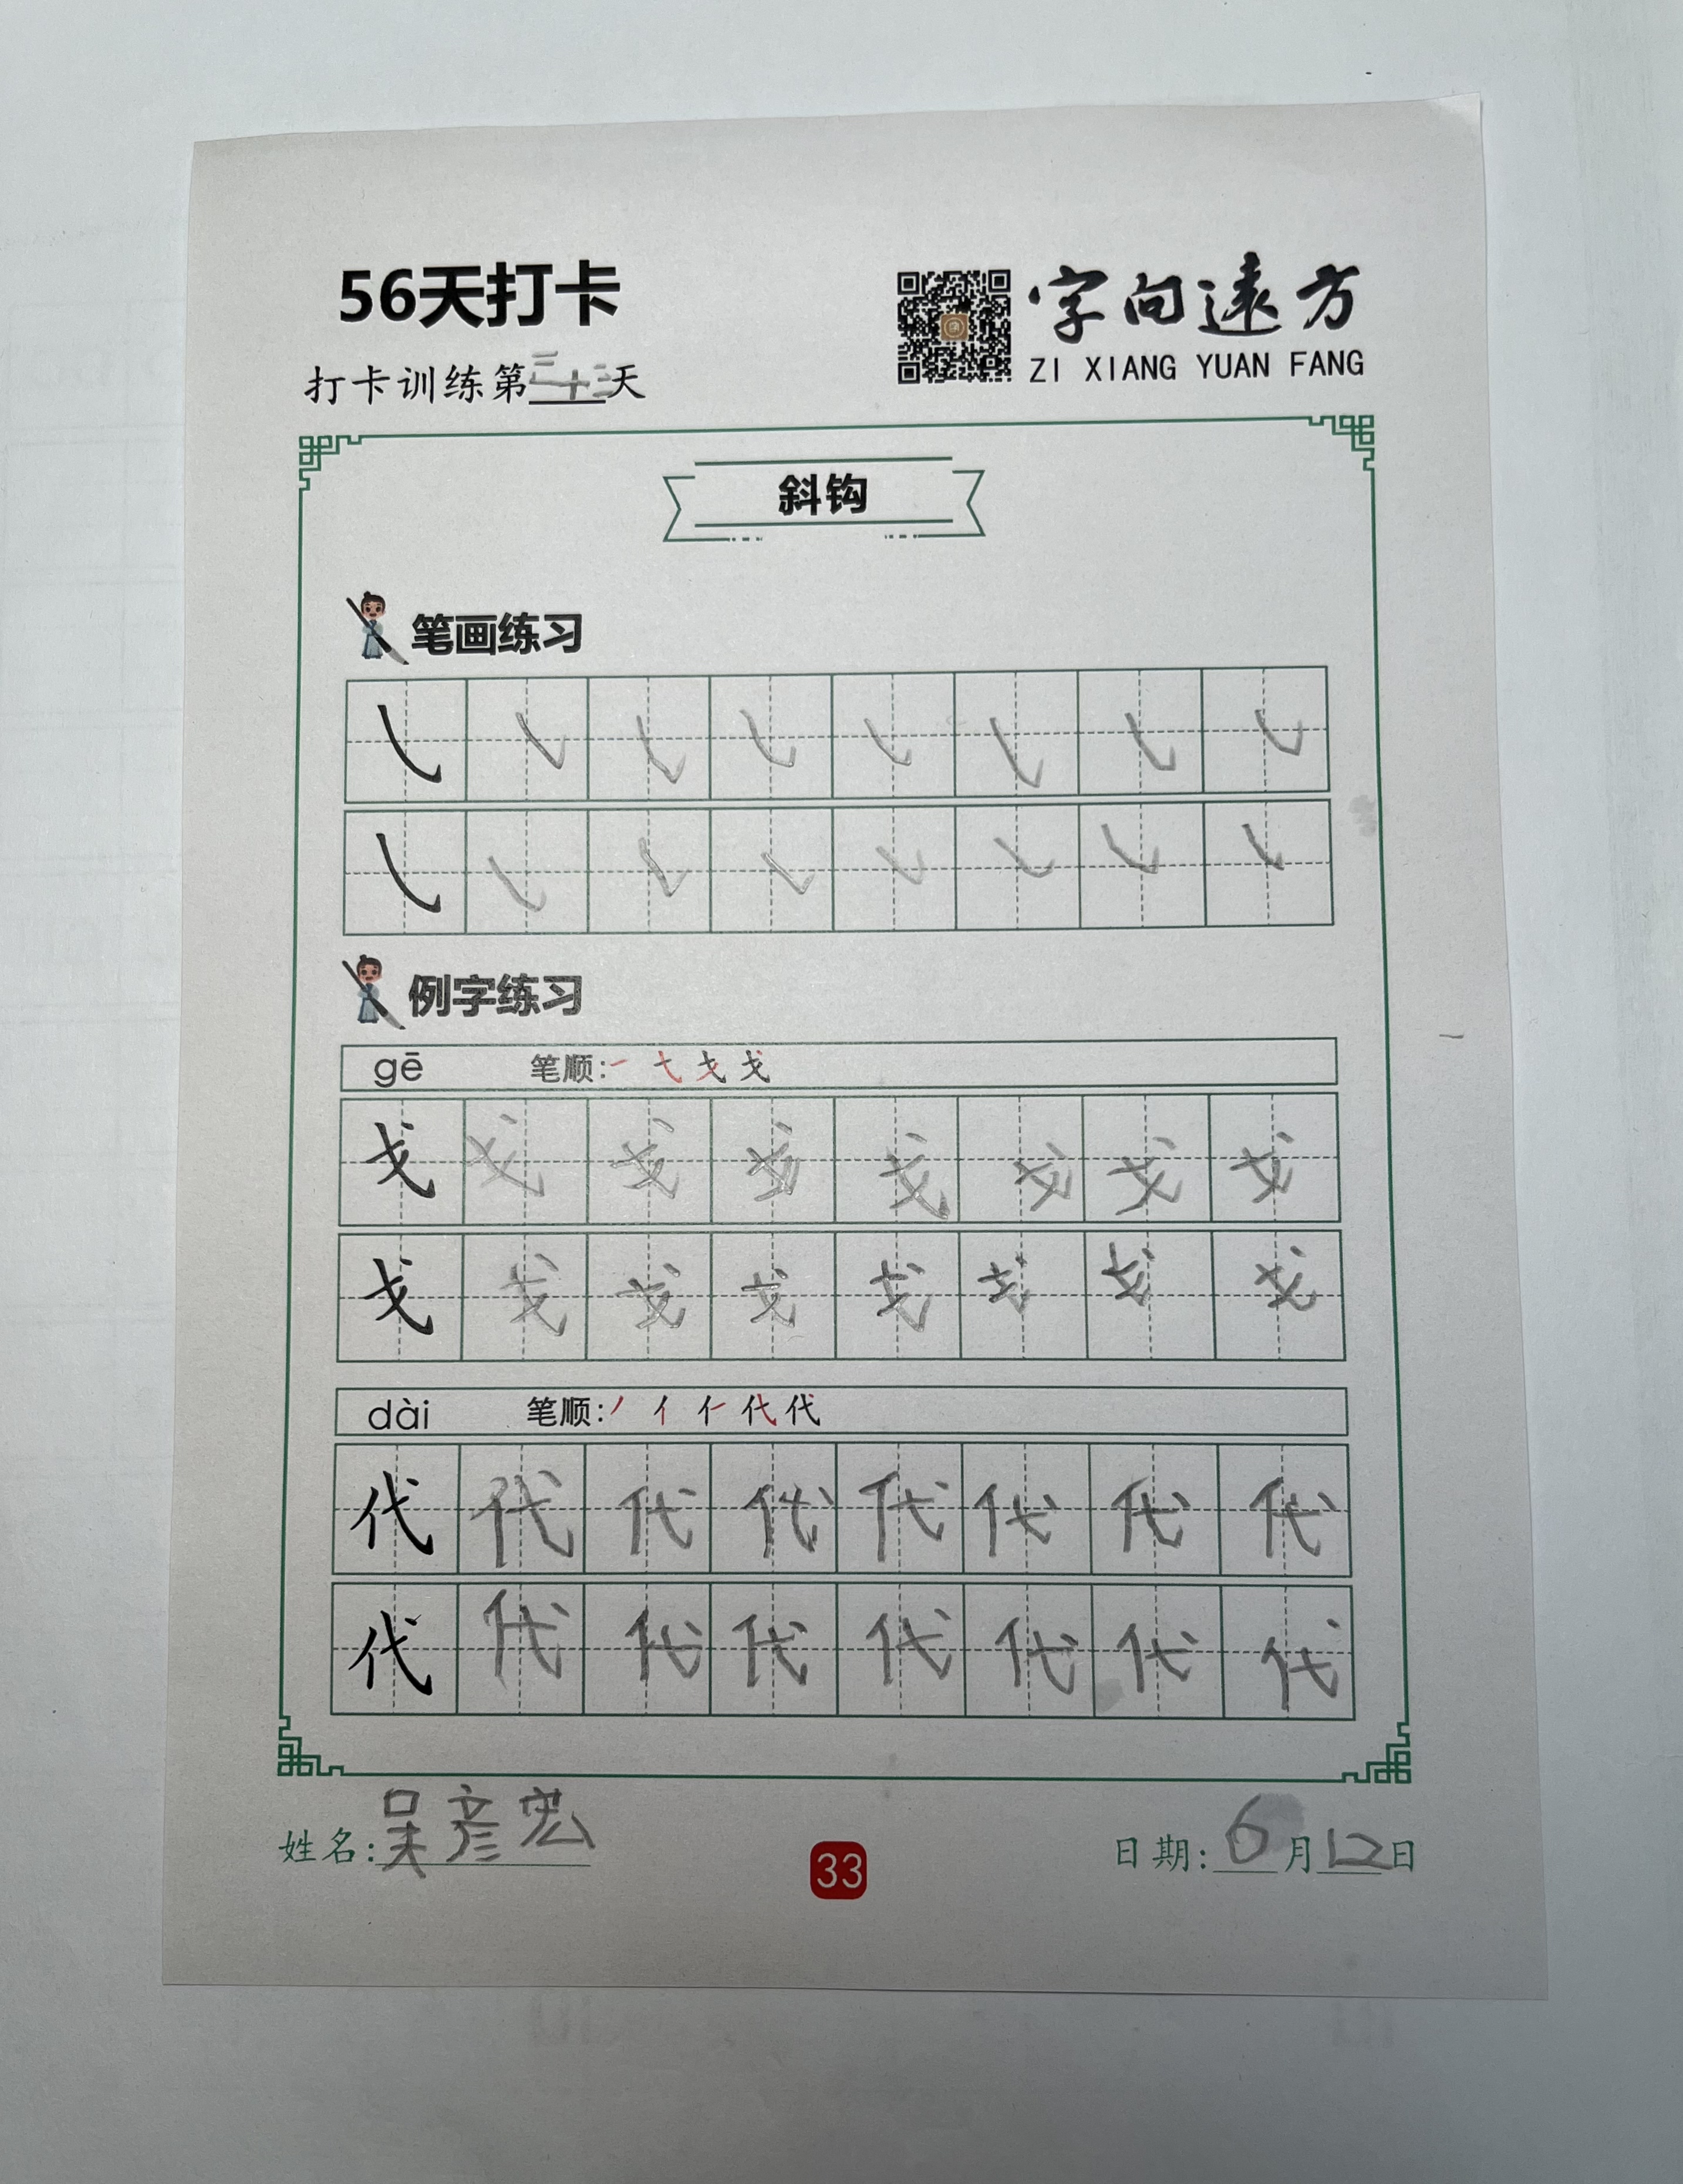 56天打卡
字向遠方
ZI XIANG YUAN FANG
打卡训练第三十三天
斜钩
笔画练习
例字练习
gē 笔顺:一 弋 戈 戈
戈 戈 戈 戈 戈 戈 戈 戈
戈 戈 戈 戈 戈 戈 戈 戈
dài 笔顺:丿 亻 仁 代 代
代 代 代 代 代 代 代 代
代 代 代 代 代 代 代 代
姓名:吴彦宏
33
日期:6月12日